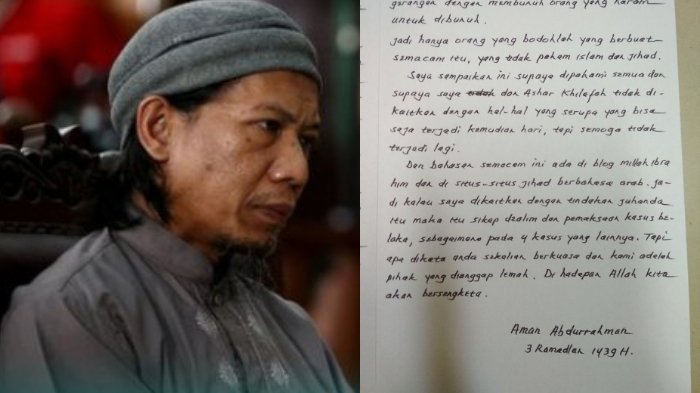 gsrangan dengan membunuh orang yang haram
untuk dibunuh.
Jadi hanya orang yang bodohlah yang berbuat
semacam itu, yang tidak paham islam dan jihad.
Saya sampaikan ini supaya dipahami semua dan
supaya saya tidak dan Ashar Khilafah tidak di-
kaitkan dengan hal-hal yang serupa yang bisa
saja terjadi kemudian hari, tapi semoga tidak
terjadi lagi.
Dan bahasan semacam ini ada di blog millah ibra
him dan di situs-situs jihad berbahasa arab. Ja-
di kalau saya dikaitkan dengan tindakan juhanda
itu maka itu sikap dzalim dan pemaksaan kasus be-
laka, sebagaimana pada 4 kasus yang lainnya. Tapi
apa dikata anda sekalian berkuasa dan kami adalah
pihak yang dianggap lemah. Di hadapan Allah kita
akan bersengketa.
Aman Abdurrahman
3 Ramadlan 1439 H.